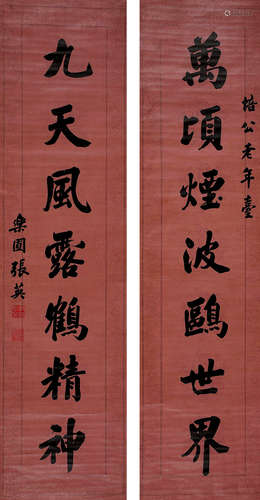 培公老年臺
萬頃煙波鷗世界
九天風露鶴精神
樂圃張英